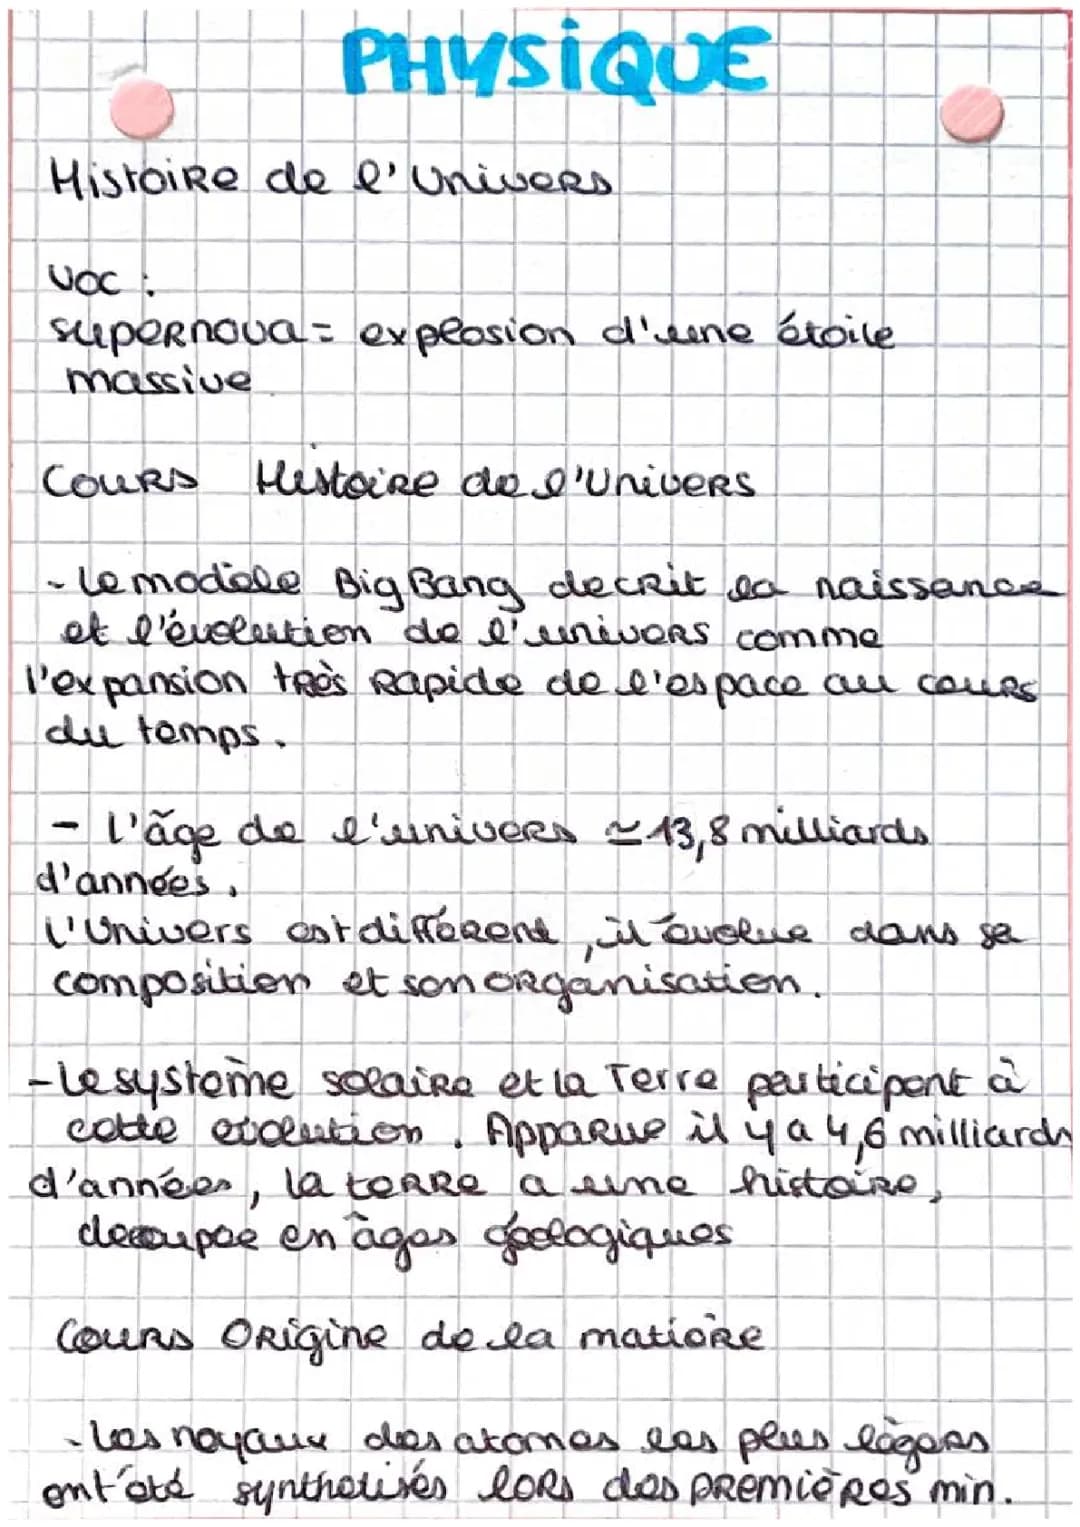 PHYSIQUE
Histoire de l'Univers
VOC :
supernova = explosion d'une étoile
massive
Cours Histoire de l'Univers
- Le modèle Big Bang decrit la naissance
et l'évolution de l'univers comme
l'expansion très rapide de l'espace au cours
du temps.
- L'âge de l'univers ≃ 13,8 milliards
d'années.
L'Univers est différent, il évolue dans sa
composition et son organisation.
- Le système solaire et la Terre participent à
cette evolution. Apparue il y a 4,6 milliards
d'années, la terre a une histoire,
decoupée en âges géologiques
Cours Origine de la matière
- Les noyaux des atomes les plus légers
ont été synthetisés lors des premières min.